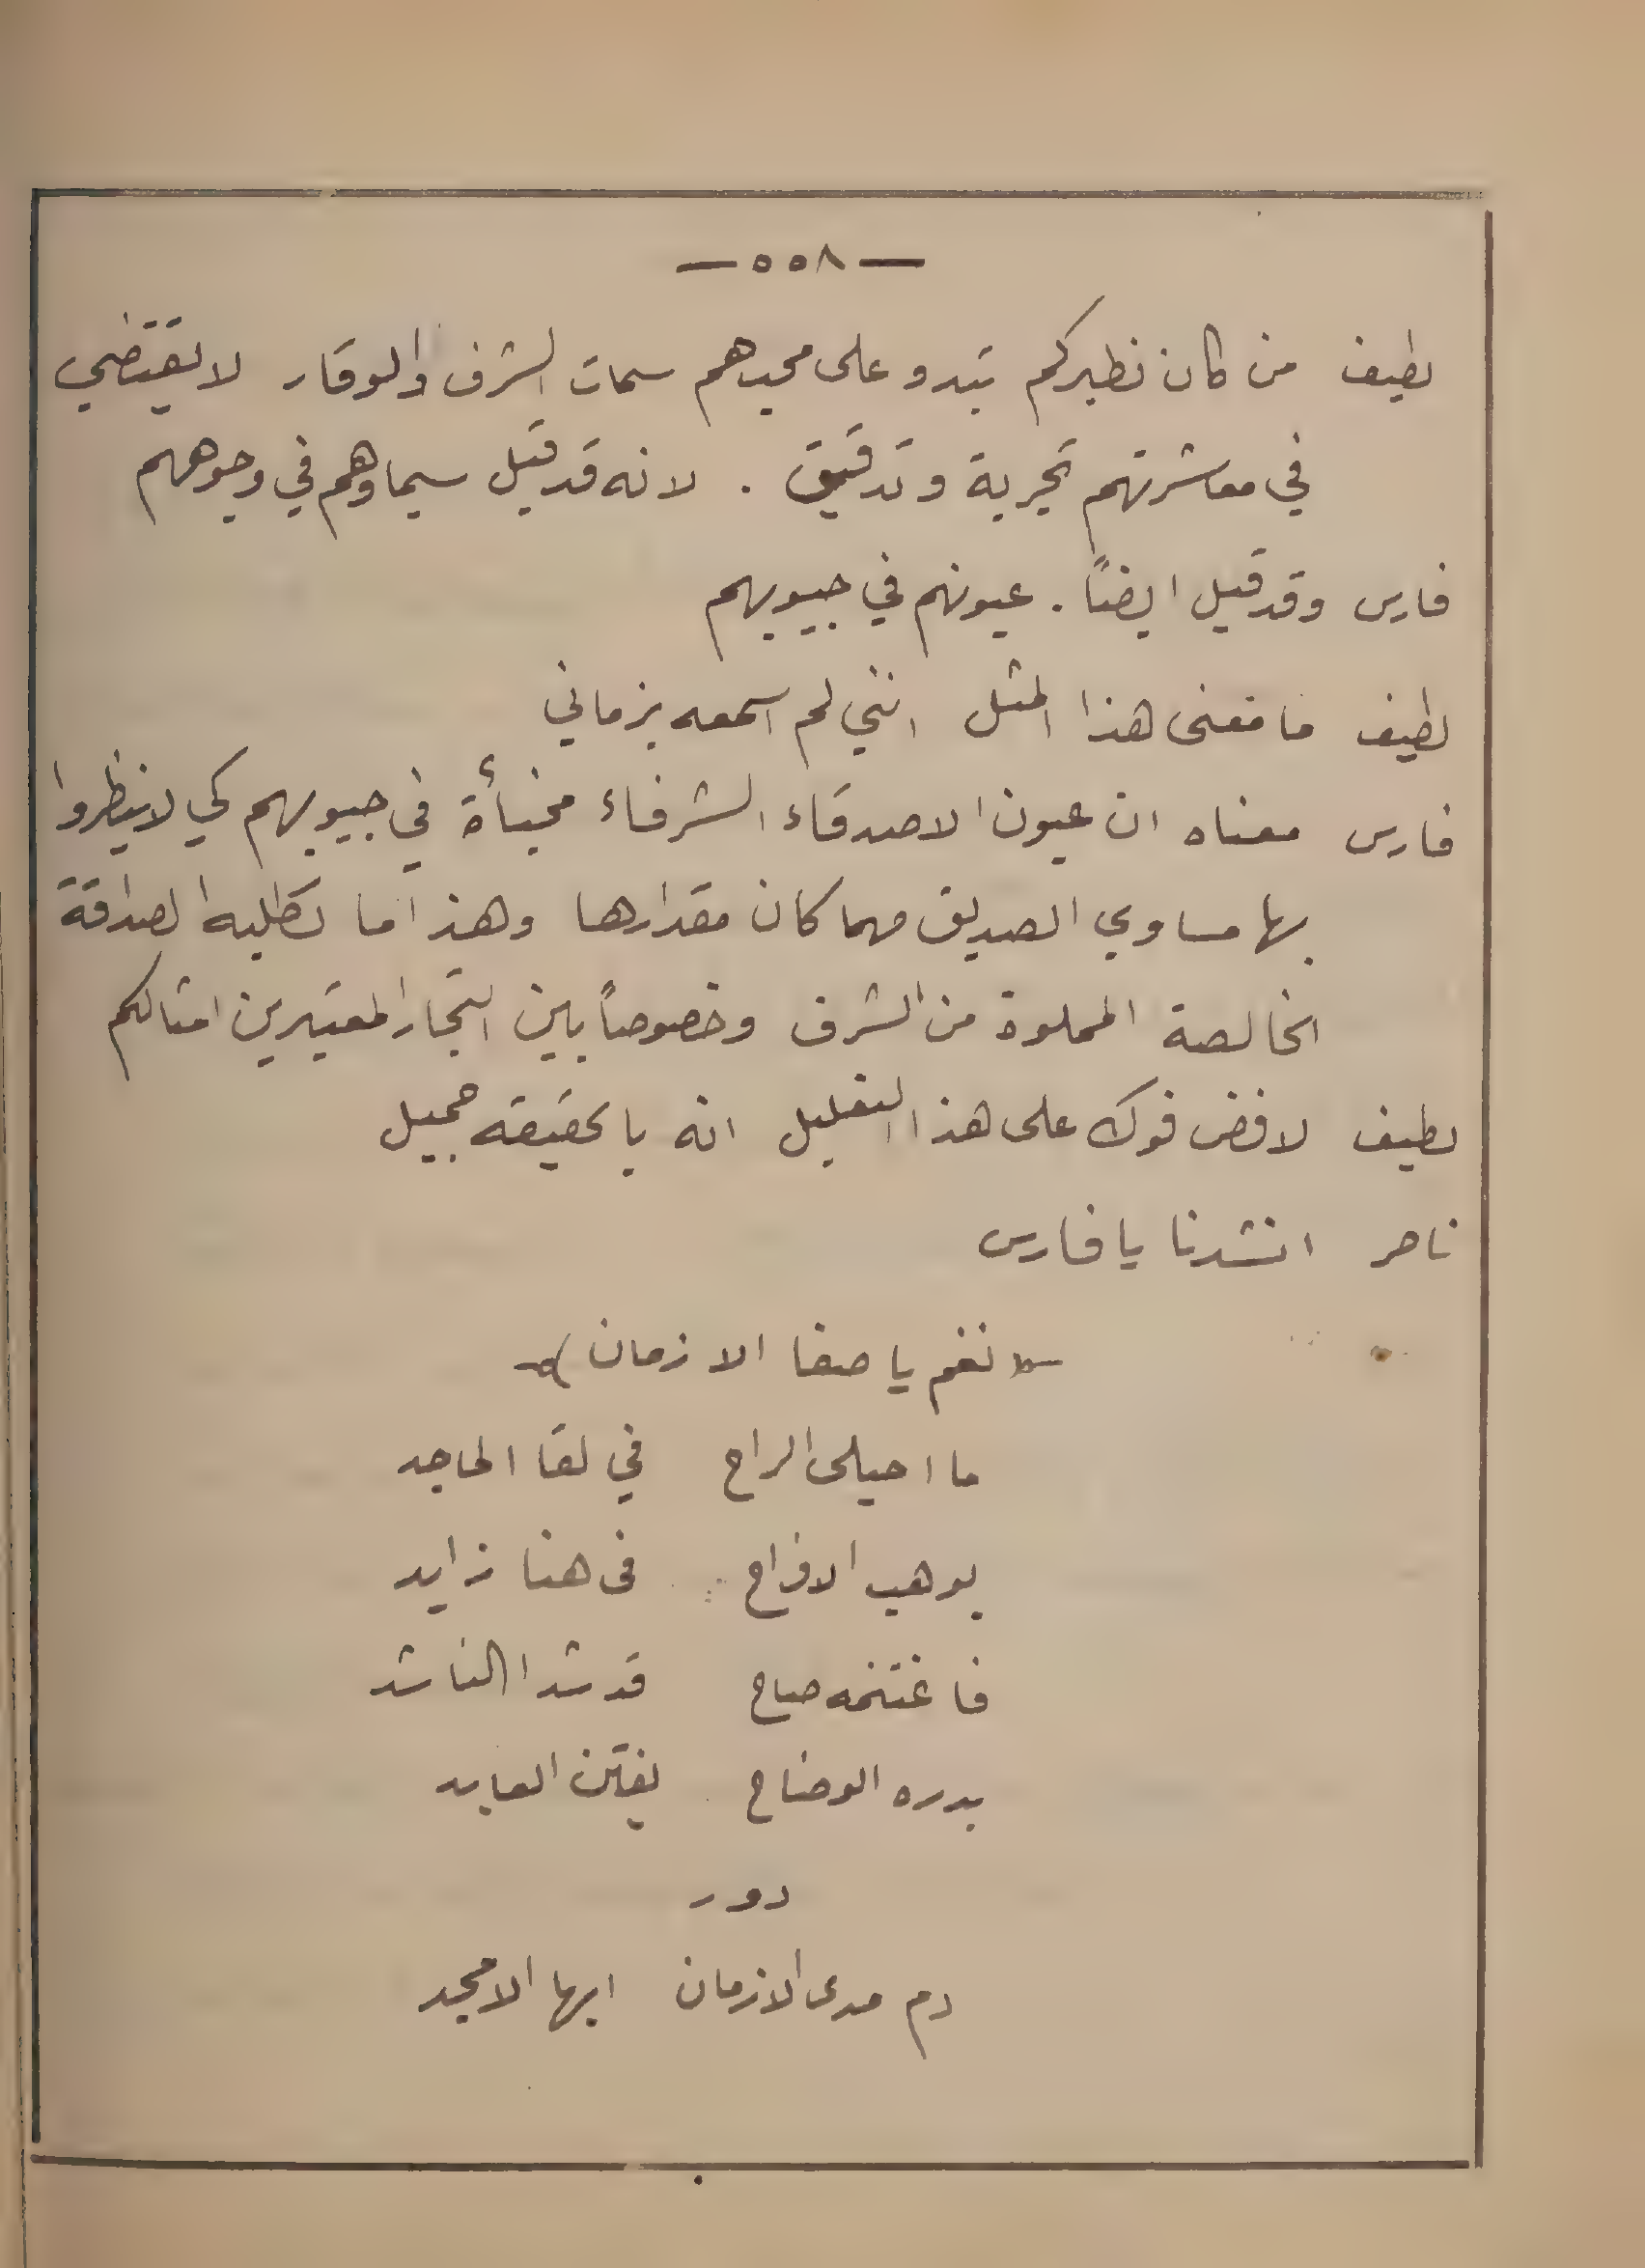 — ٥٥٨ —
لطيف من كان نظيركم تبدو على محياهم سمات الشرف والوقار لا يقتضي
في معاشرتهم تجربة وتدقيق . لانه قد قيل سيماوهم في وجوههم
فارس وقد قيل ايضاً . عيونهم في جيوبهم
لطيف ما معنى هذا المثل انني لم اسمعه بزماني
فارس معناه ان عيون الاصدقاء الشرفاء مخبأة في جيوبهم كي لا ينظروا
بها مساوي الصديق مهما كان مقدارها وهذا ما تطلبه الصداقة
الخالصة المملوة من الشرف وخصوصاً بين التجار المعتبرين امثالكم
لطيف لا فض فوك على هذا التعليل انه بالحقيقه جميل
ناصر انشدنا يا فارس
نغم يا صفا الازمان
ما احيلى الراح في لقا الماجد
يوهب الافراح في هنا زايد
فاغتنمه صاح قد شدا الناشد
بدره الوضاح يفتن العابد
دور
دم مدى الازمان ايها الامجد